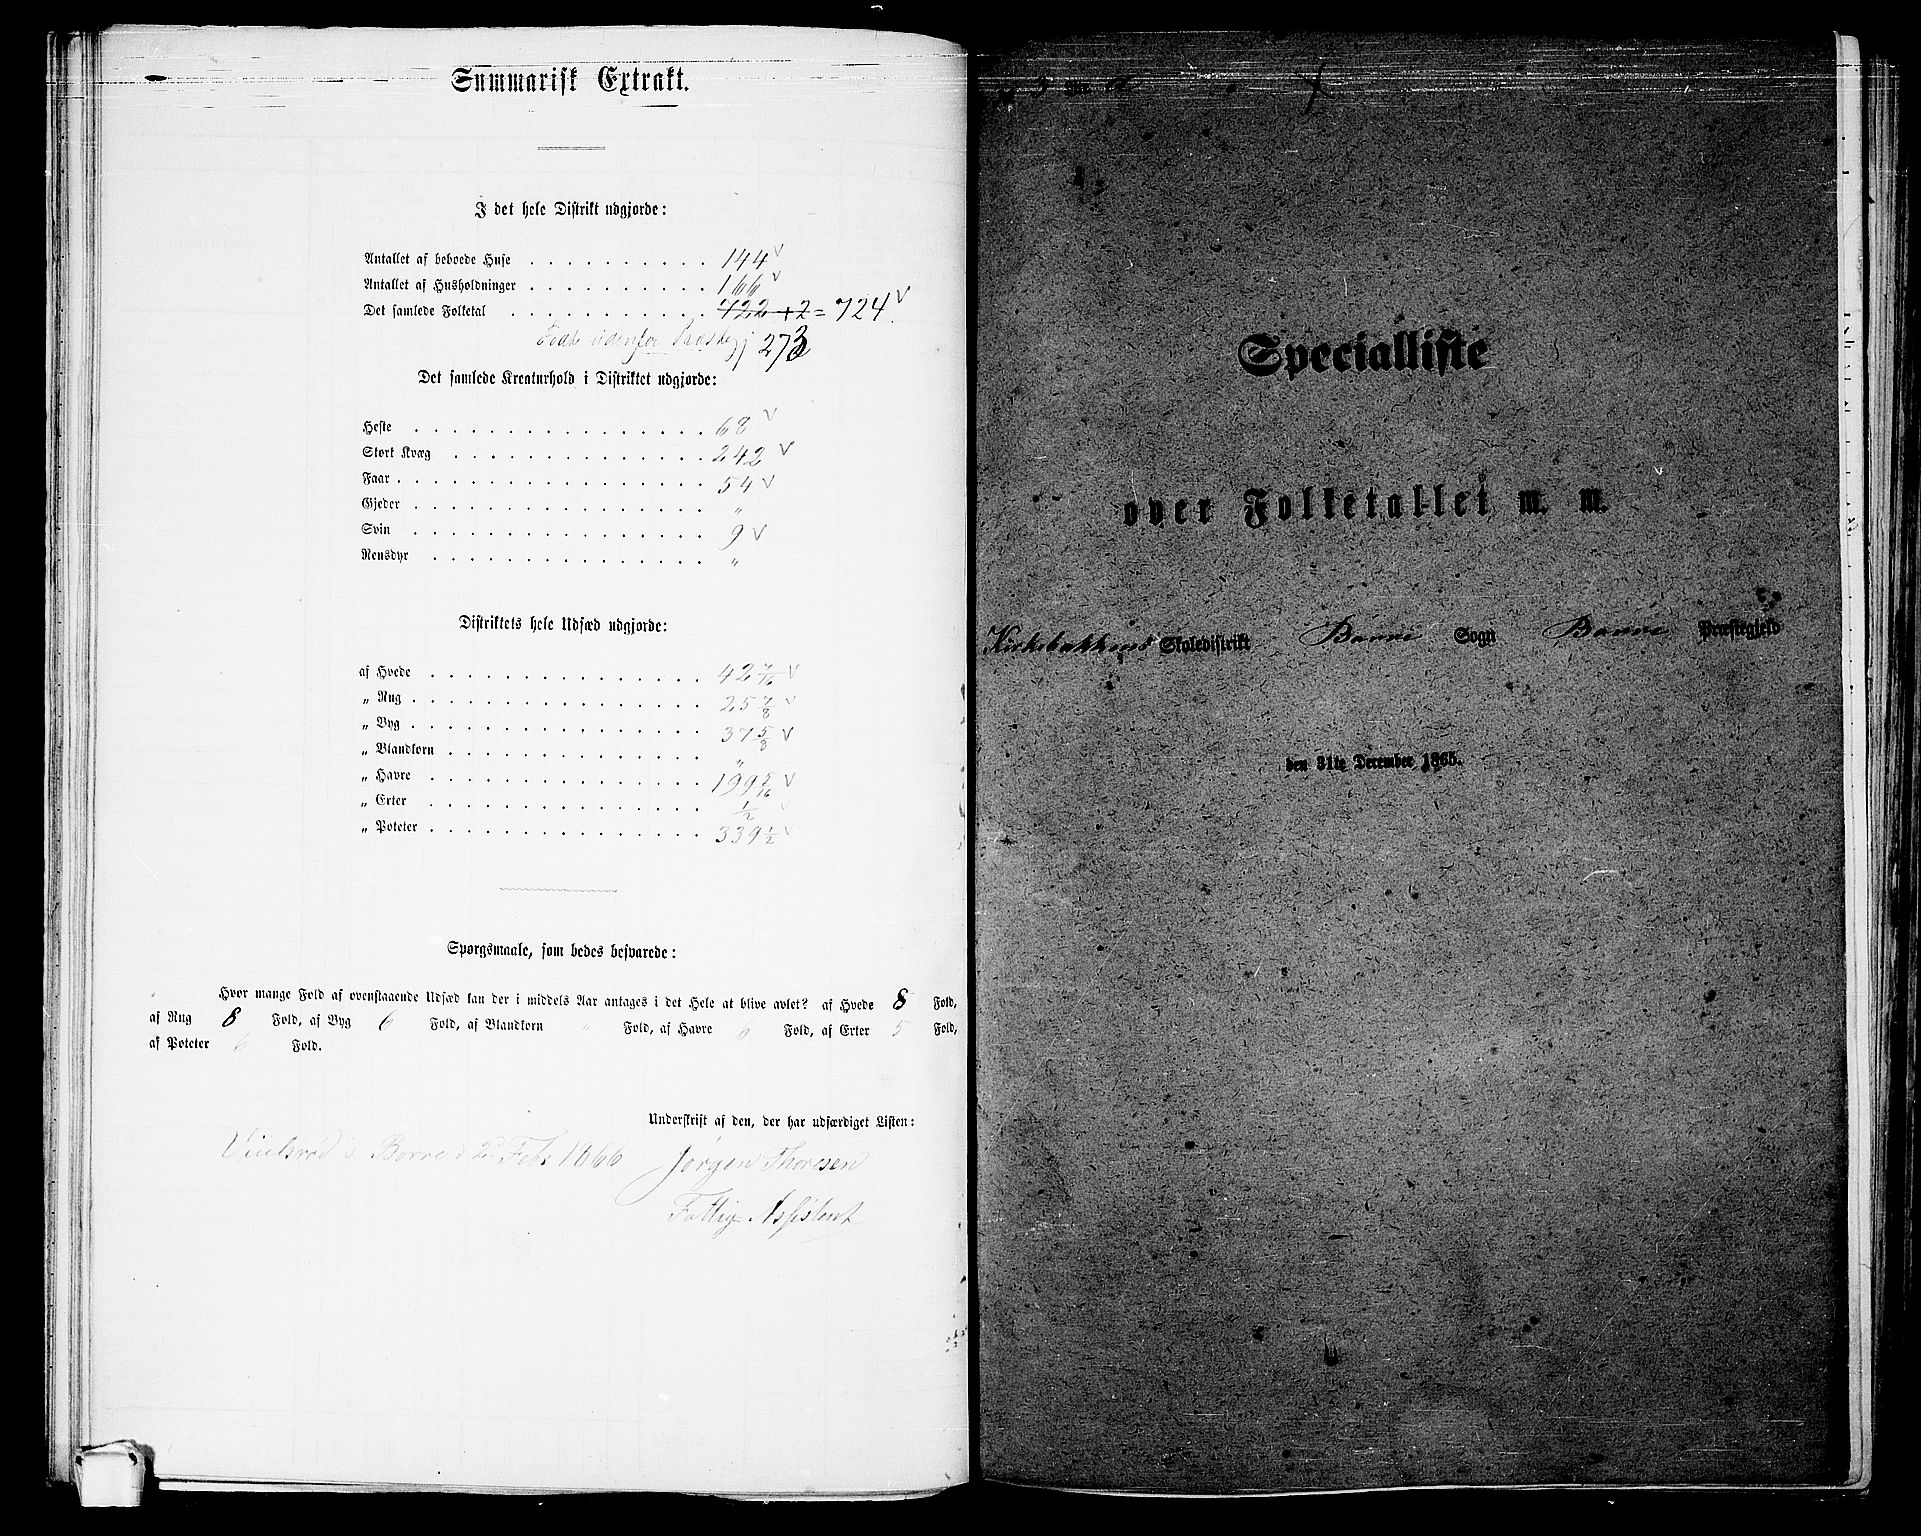 Summarisk Extrakt.
I det hele Distrikt udgjorde:
Antallet af beboede Huse . . . . . . . . . . 144 v
Antallet af Husholdninger . . . . . . . . . . 166 v
Det samlede Folketal . . . . . . . . . . . 722 + 2 = 724 v
Fødte udenfor Præstegj 273
Det samlede Kreaturhold i Distriktet udgjorde:
Heste . . . . . . . . . . . . . . . . 68 v
Stort Kvæg . . . . . . . . . . . . . . 242 v
Faar . . . . . . . . . . . . . . . . . 54 v
Gjeder . . . . . . . . . . . . . . . . "
Svin . . . . . . . . . . . . . . . . 9 v
Rensdyr . . . . . . . . . . . . . . . "
Distriktets hele Udsæd udgjorde:
af Hvede . . . . . . . . . . . . . . . 42 7/16 v
„ Rug . . . . . . . . . . . . . . . . 25 7/8 v
„ Byg . . . . . . . . . . . . . . . . 37 5/8 v
„ Blandkorn . . . . . . . . . . . . . . "
„ Havre . . . . . . . . . . . . . . . 199 5/16 v
„ Erter . . . . . . . . . . . . . . . 1/2 v
„ Poteter . . . . . . . . . . . . . . . 339 1/2 v
Spørgsmaale, som bedes besvarede:
Hvor mange Fold af ovenstaaende Udsæd kan der i middels Aar antages i det Hele at blive avlet? af Hvede 8 Fold,
af Rug 8 Fold, af Byg 6 Fold, af Blandkorn " Fold, af Havre 6 Fold, af Erter 5 Fold,
af Poteter 6 Fold.
Underskrift af den, der har udfærdiget Listen:
i Borre d 2 Febr 1866 Jørgen Thoresen
Fattig-Assistent
Specialliste
over Folketallet m. m.
Kirkebakkens Skoledistrikt Borre Sogn Borre Præstegjeld
den 31te December 1865.